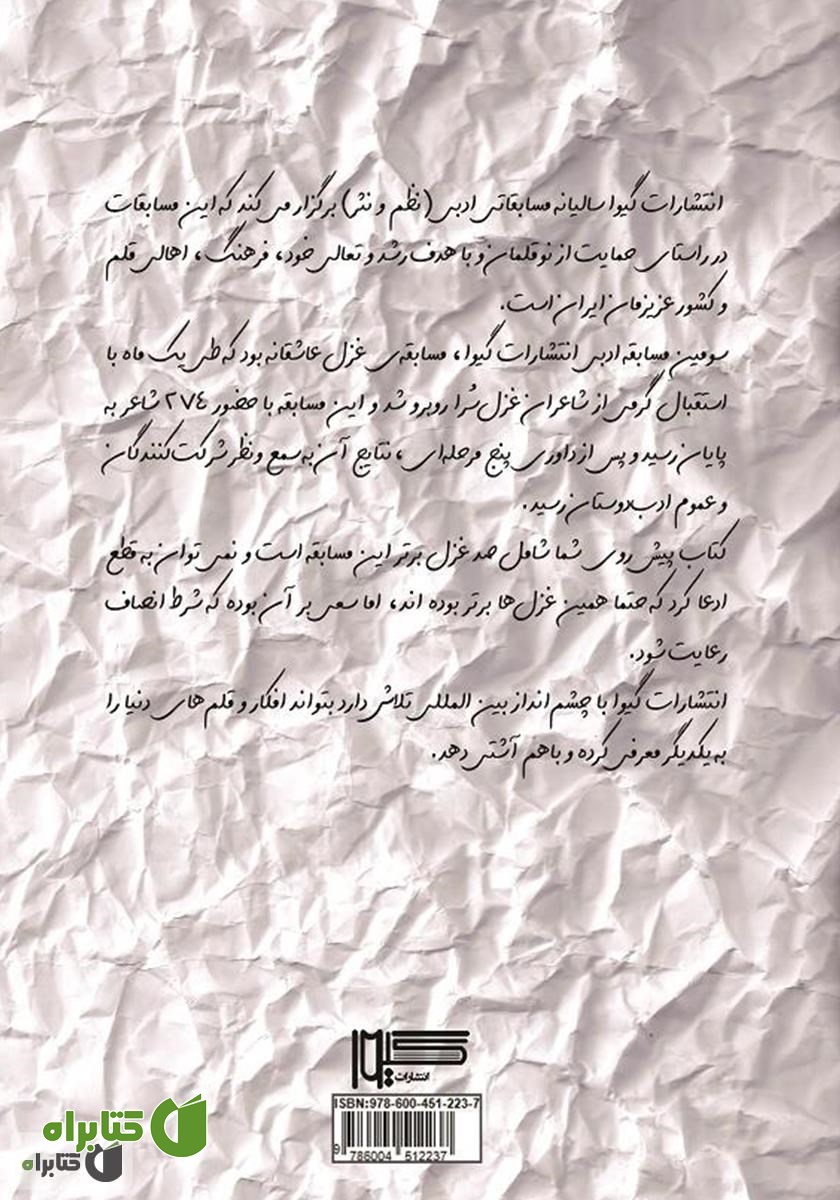 انتشارات گیوا سالیانه مسابقاتی ادبی (نظم و نثر) برگزار می کند که این مسابقات
در راستای حمایت از نوقلمان و با هدف رشد و تعالی خود، فرهنگ، اهالی قلم
و کشور عزیزمان ایران است.
سومین مسابقه ادبی انتشارات گیوا، مسابقه‌ی غزل عاشقانه بود که طی یک ماه با
استقبال گرمی از شاعران غزل سُرا روبرو شد و این مسابقه با حضور ۲۷۴ شاعر به
پایان رسید و پس از داوری پنج مرحله‌ای، نتایج آن به سمع و نظر شرکت‌کنندگان
و عموم ادب‌دوستان رسید.
کتاب پیش روی شما شامل صد غزل برتر این مسابقه است و نمی توان به قطع
ادعا کرد که حتما همین غزل‌ها برتر بوده اند، اما سعی بر آن بوده که شرط انصاف
رعایت شود.
انتشارات گیوا با چشم انداز بین المللی تلاش دارد بتواند افکار و قلم های دنیا را
به یکدیگر معرفی کرده و باهم آشتی دهد.
گیوا
انتشارات
ISBN:978-600-451-223-7
9 786004 512237
کتابراه
کتابراه